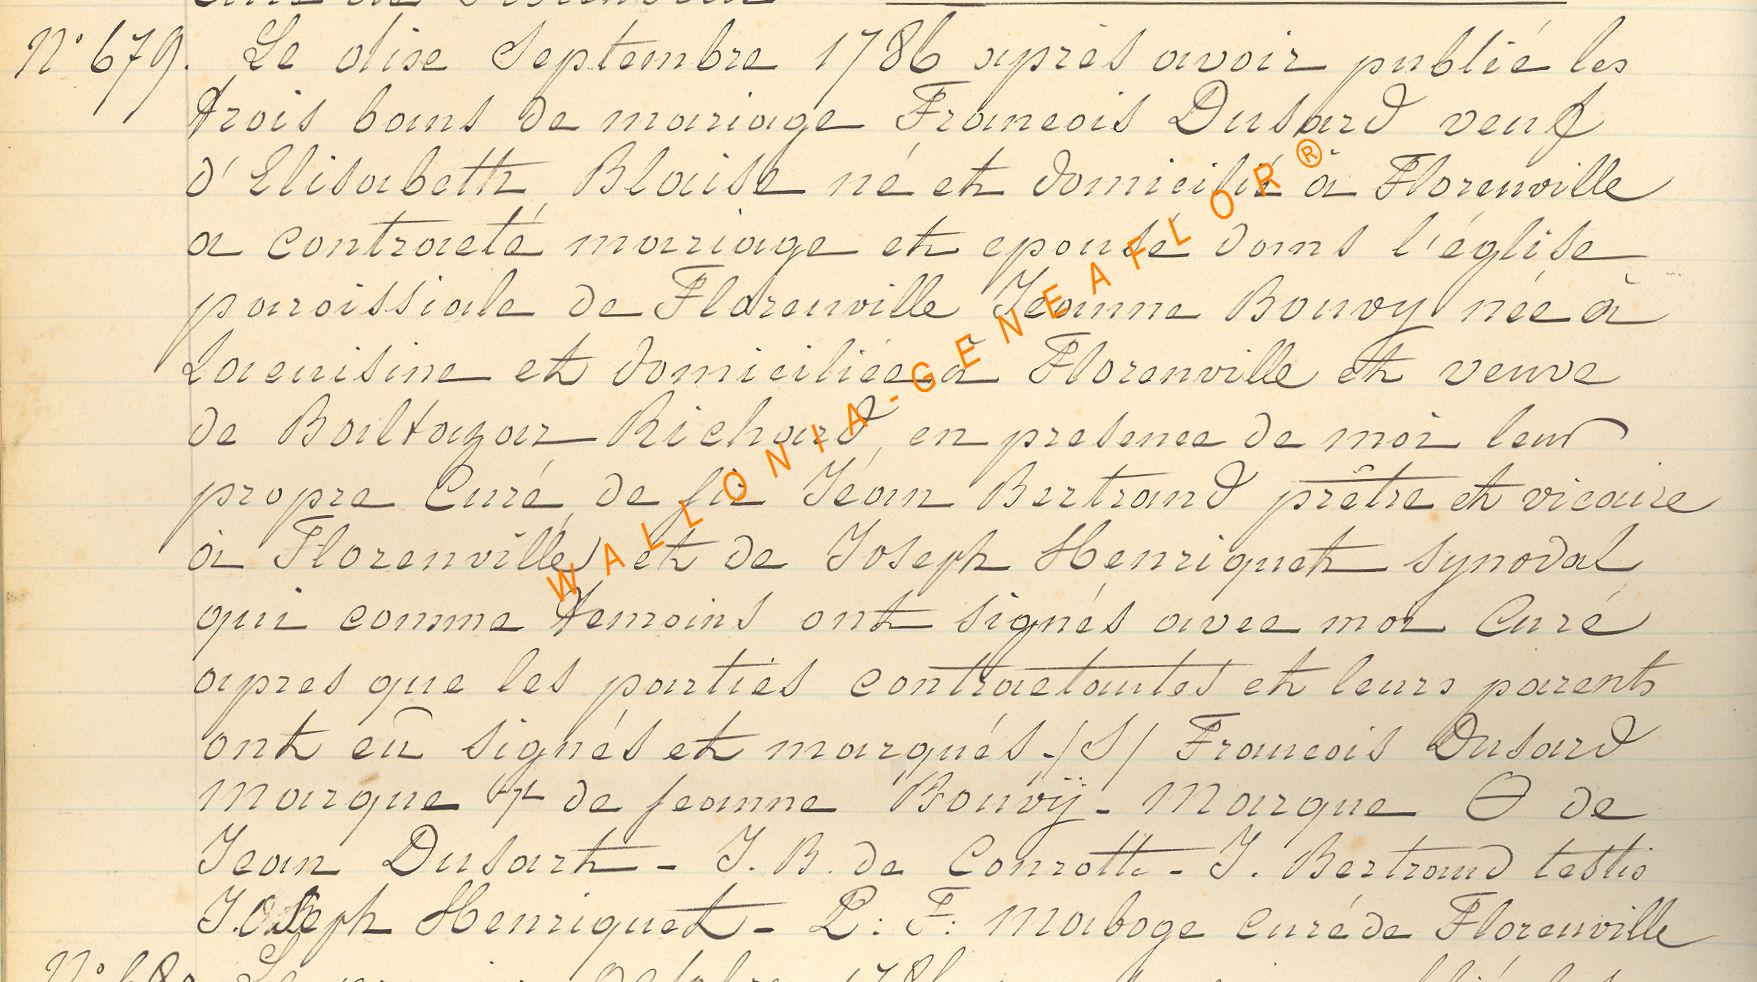 N° 679. Le dixe Septembre 1786 après avoir publié les
trois bans de mariage Francois Dusard veuf
d'Elisabeth Blaise né et domicilié à Florenville
a contracté mariage et epousé dans l'église
paroissiale de Florenville Jeanne Bouvy née à
Lacuisine et domiciliée à Florenville et veuve
de Baltazar Richard, en presence de moi leur
propre Curé, de sir Jéan Bertrand prêtre et vicaire
à Florenville et de Joseph Henriquet synodal
qui comme temoins ont signés avec moi Curé
apres que les parties contractantes et leurs parents
ont eu signés et marqués - /S/ Francois Dusard
marque + de jeanne Bouvÿ - Marque Θ de
Jean Dusart - J. B. de Conrotte - J. Bertrand testis
Joseph Henriquet - P: F: Maboge curé de Florenville
WALLONIA-GENEAFLOR®